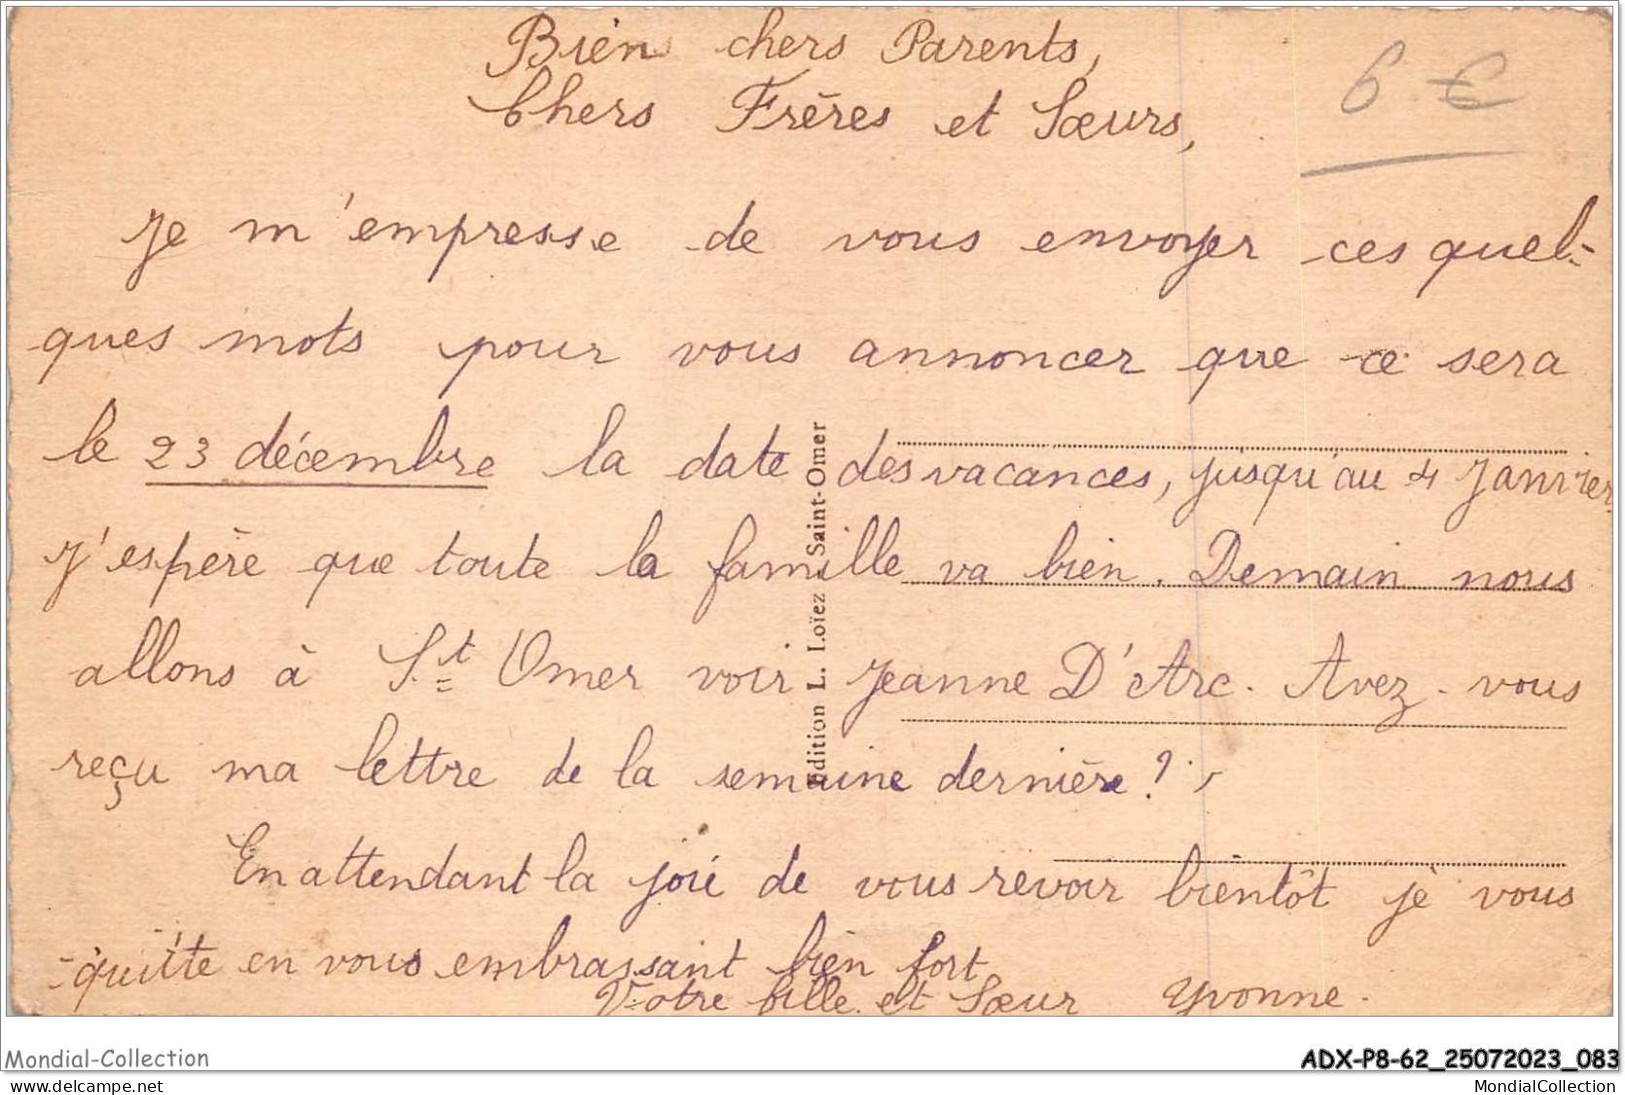 Biens chers Parents,
Chers Frères et Sœurs,
6 €
Je m'empresse de vous envoyer ces quel-
ques mots pour vous annoncer que ce sera
le 23 décembre la date des vacances, jusqu'au 4 Janvier
J'espère que toute la famille va bien. Demain nous
allons à St Omer voir Jeanne D'Arc. Avez-vous
reçu ma lettre de la semaine dernière ?
En attendant la joie de vous revoir bientôt je vous
quitte en vous embrassant bien fort
Votre fille et Sœur Yvonne.
Edition L. Loïez Saint-Omer
Mondial-Collection
ADX-P8-62_25072023_083
delcampe.net
MondialCollection